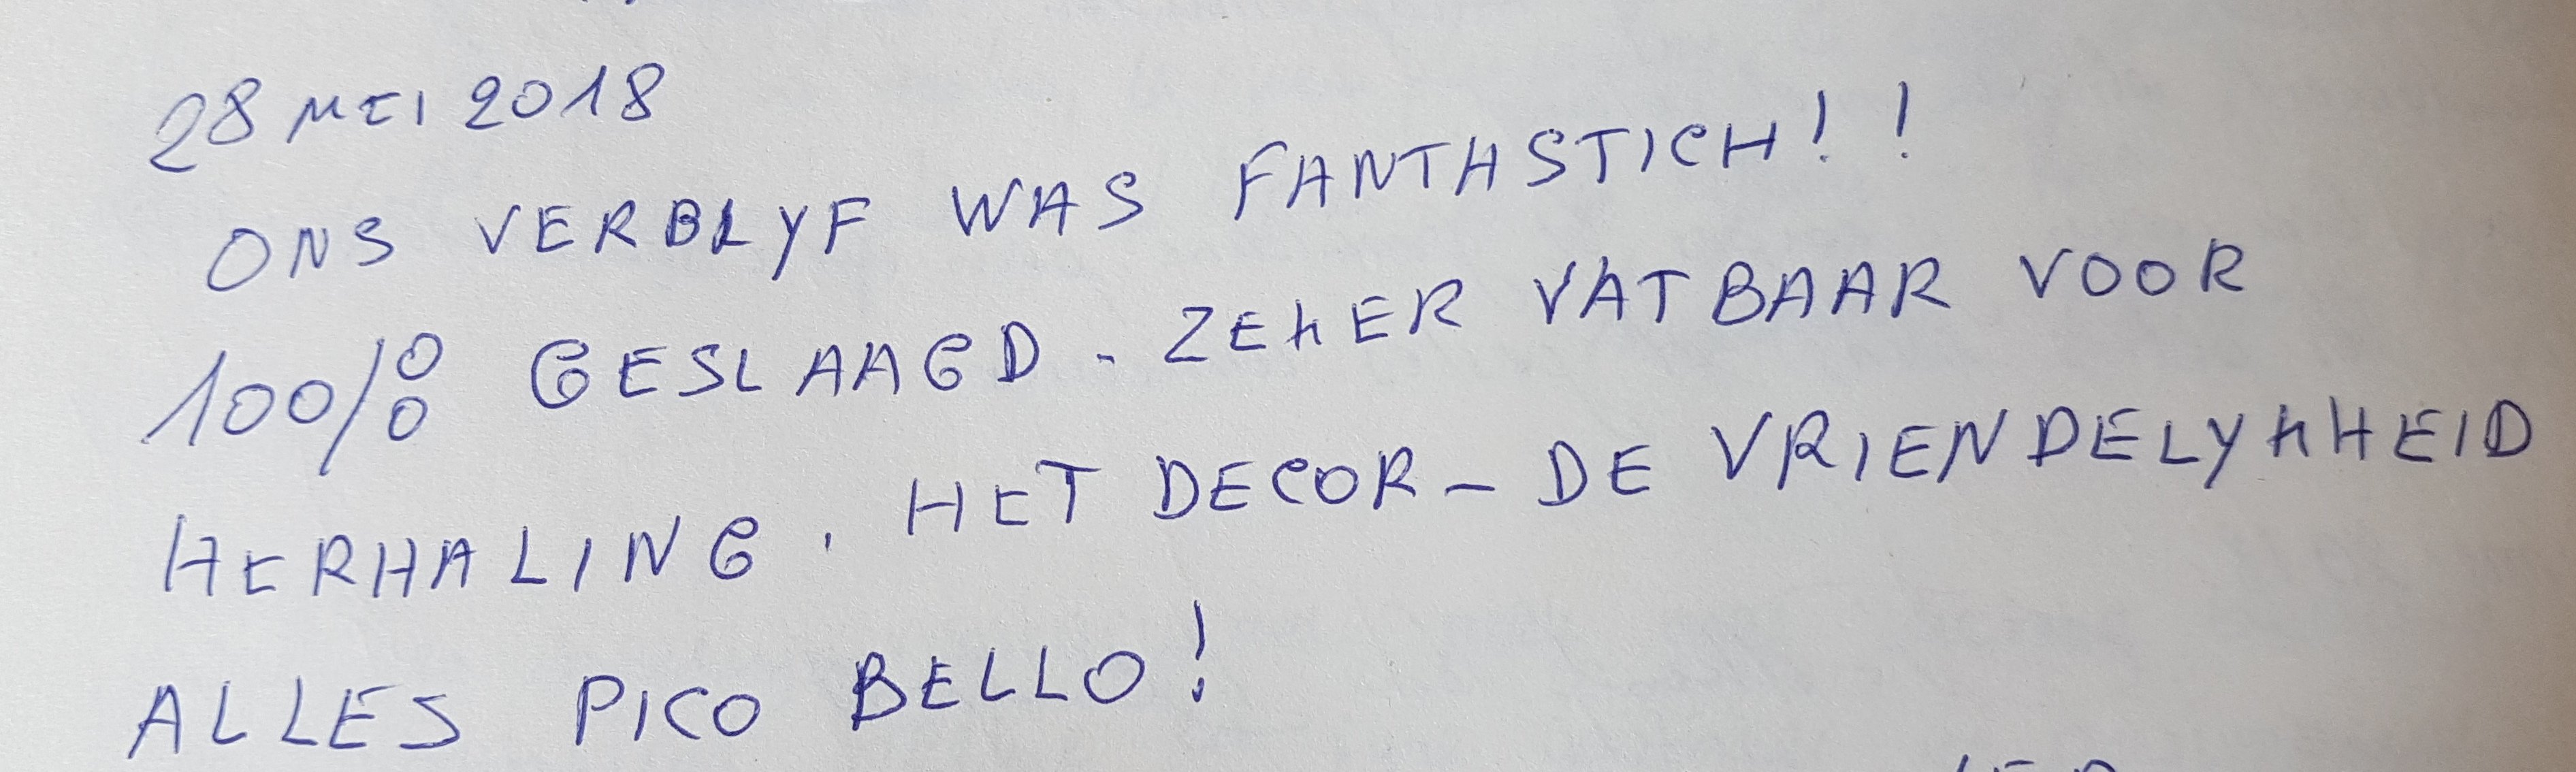 28 MEI 2018
ONS VERBLYF WAS FANTASTISCH!!
100% GESLAAGD - ZEKER VATBAAR VOOR
HERHALING. HET DECOR - DE VRIENDELYKHEID
ALLES PICO BELLO!